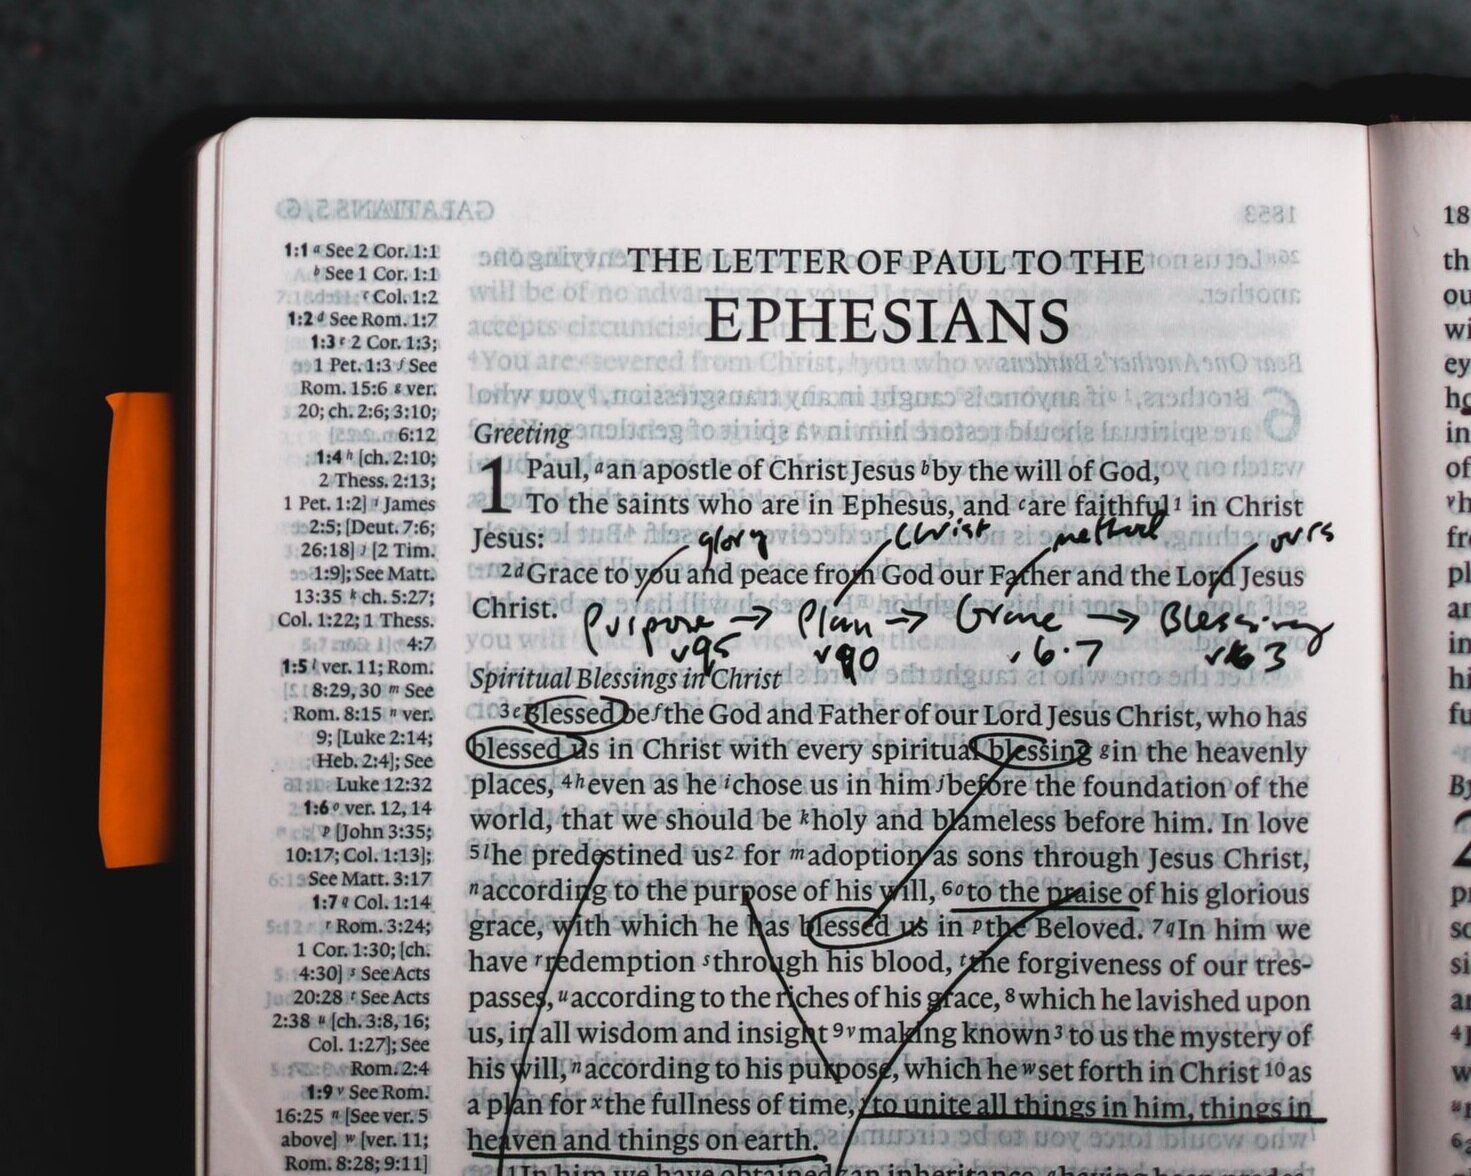 THE LETTER OF PAUL TO THE
EPHESIANS
1:1 a See 2 Cor. 1:1
b See 1 Cor. 1:1
c Col. 1:2
1:2 d See Rom. 1:7
1:3 e 2 Cor. 1:3;
1 Pet. 1:3 f See
Rom. 15:6 g ver.
20; ch. 2:6; 3:10;
6:12
1:4 h [ch. 2:10;
2 Thess. 2:13;
1 Pet. 1:2] i James
2:5; [Deut. 7:6;
26:18] j [2 Tim.
1:9]; See Matt.
13:35 k ch. 5:27;
Col. 1:22; 1 Thess.
4:7
1:5 l ver. 11; Rom.
8:29, 30 m See
Rom. 8:15 n ver.
9; [Luke 2:14;
Heb. 2:4]; See
Luke 12:32
1:6 o ver. 12, 14
p [John 3:35;
10:17; Col. 1:13];
See Matt. 3:17
1:7 q Col. 1:14
r Rom. 3:24;
1 Cor. 1:30; [ch.
4:30] s See Acts
20:28 t See Acts
2:38 u [ch. 3:8, 16;
Col. 1:27]; See
Rom. 2:4
1:9 v See Rom.
16:25 n [See ver. 5
above] w [ver. 11;
Rom. 8:28; 9:11]
Greeting
1 Paul, a an apostle of Christ Jesus b by the will of God,
To the saints who are in Ephesus, and c are faithful 1 in Christ
Jesus:
glory Christ method ours
2 d Grace to you and peace from God our Father and the Lord Jesus
Christ.
Purpose → Plan → Grace → Blessing
v 6-7 3
Spiritual Blessings in Christ
3 e Blessed be f the God and Father of our Lord Jesus Christ, who has
blessed us in Christ with every spiritual blessing g in the heavenly
places, 4 h even as he i chose us in him j before the foundation of the
world, that we should be k holy and blameless before him. In love
5 l he predestined us 2 for m adoption as sons through Jesus Christ,
n according to the purpose of his will, 6 o to the praise of his glorious
grace, with which he has blessed us in p the Beloved. 7 q In him we
have r redemption s through his blood, t the forgiveness of our tres-
passes, u according to the riches of his grace, 8 which he lavished upon
us, in all wisdom and insight 9 v making known 3 to us the mystery of
his will, n according to his purpose, which he w set forth in Christ 10 as
a plan for x the fullness of time, y to unite all things in him, things in
heaven and things on earth.
In him we have obtained an inheritance,